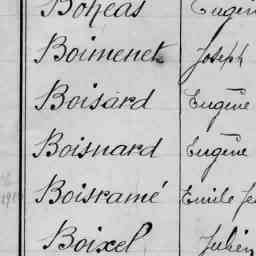 Bohéas Eugène
Boimenet Joseph
Boisard Eugène
Boisnard Eugène
Boisramé Emile
Boixel Julien